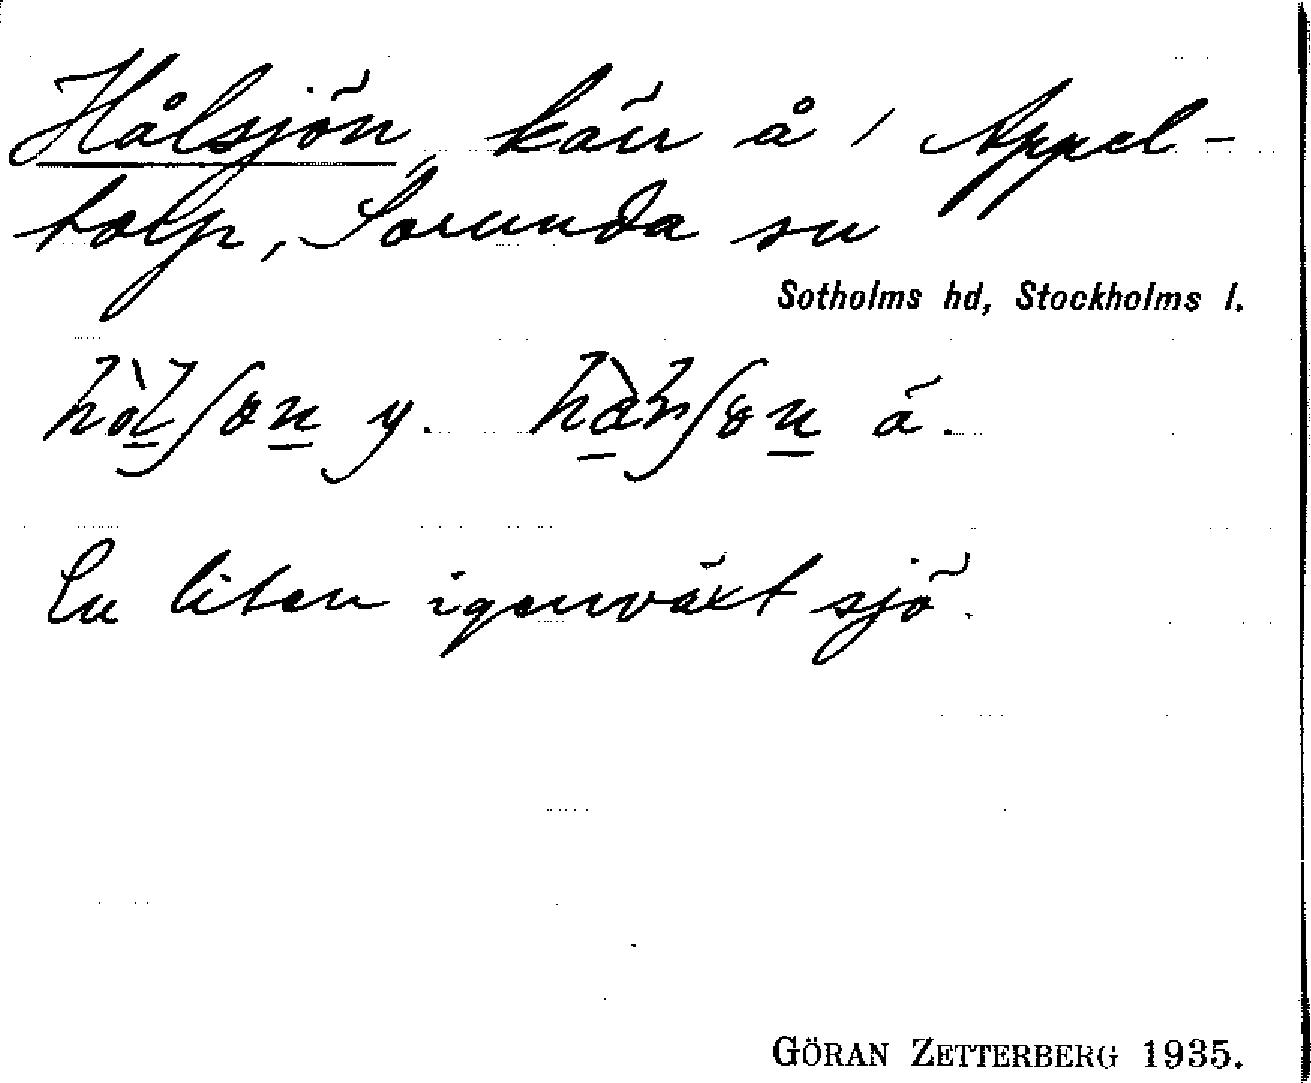 Hålsjön, kärr å 1 Appel-
torp, Sorunda sn
Sotholms hd, Stockholms l.
y. ä.
En liten igenväxt sjö.
GÖRAN ZETTERBERG 1935.